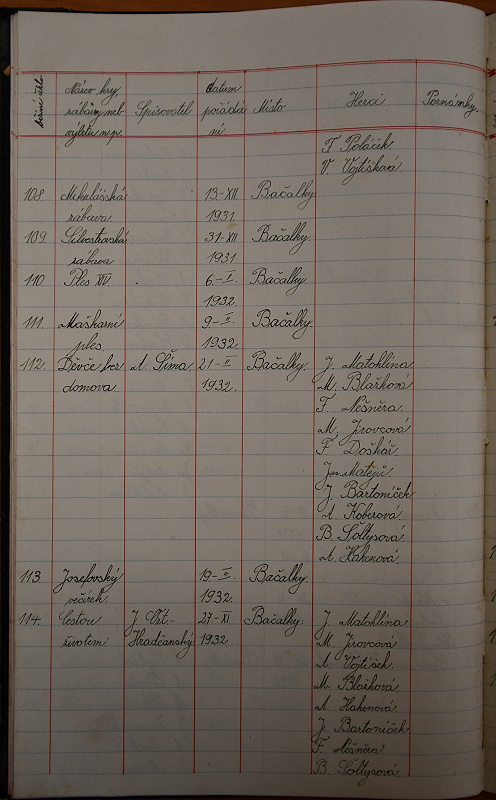 Název hry,
zábavy neb
výletu n.p.
Spisovatel
datum
pořádá
ní
Místo
Herci
Poznámky.
F Poláček
V. Vojtíšková
108. Mikulášská 13.-XII Bačalky
zábava 1931
109. Silvestrovská 31-XII Bačalky.
zábava 1931
110 Ples XIV. 6.-I. Bačalky
1932.
111. Maškarní 9-II. Bačalky.
ples 1932.
112. Děvče bez A. Šíma. 21-II Bačalky. J. Matohlína
domova. 1932. M. Blažková
F. Nešněra.
M. Jirovcová
F Doškář
Jan. Matějů
J. Bartoníček
A. Koberová.
B. Šoltysová.
A. Hakenová.
113 Josefovský 19-III. Bačalky.
večírek. 1932.
114. Cestou J. Vrt.- 27-XI Bačalky. J. Matohlína
životem. Hradčanský. 1932. M. Jirovcová
A. Vojtíšek.
M. Blažková
A. Hakenová
J. Bartoníček
F Nešněra
B. Šoltysová.